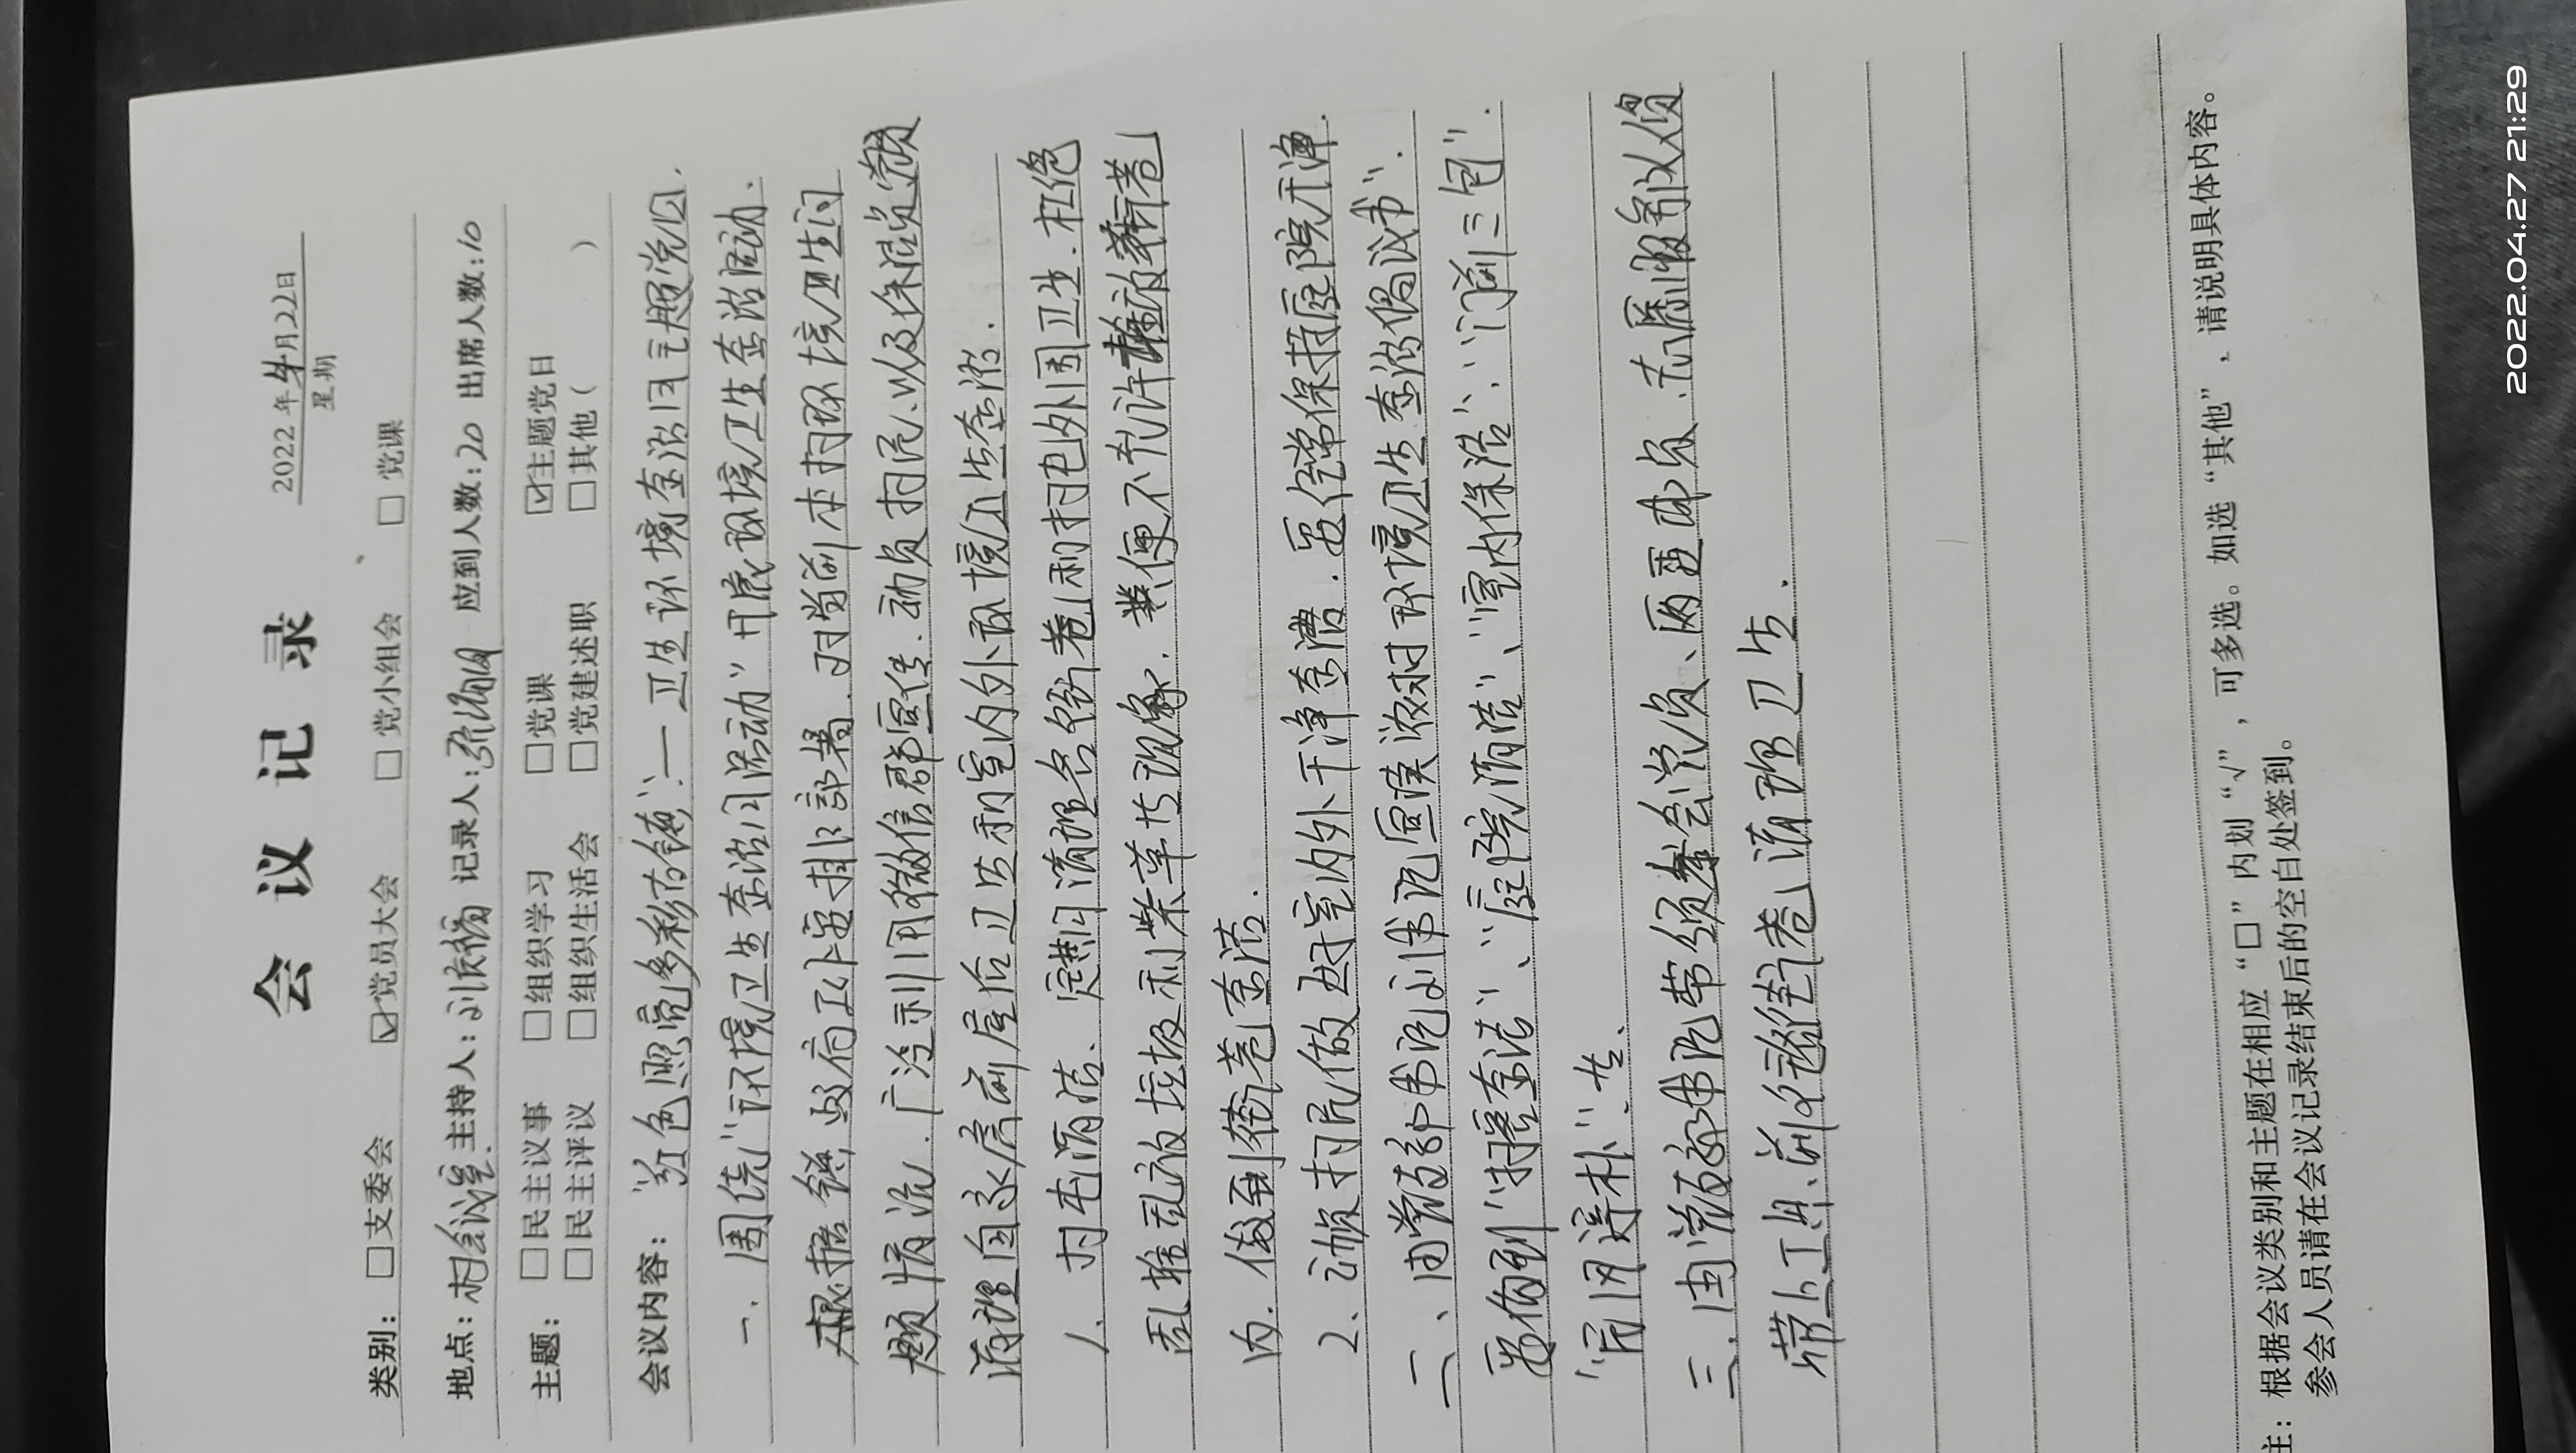 会议记录
2022年4月22日
星期
类别：□支委会 ☑党员大会 □党小组会 □党课
地点：村会议室 主持人：刘 记录人：张 应到人数：20 出席人数：10
主题：□民主议事 □组织学习 □党课 ☑主题党日
□民主评议 □组织生活会 □党建述职 □其他（ ）
会议内容：“红色照亮多彩古镇”——卫生环境整治日主题党日.
一、围绕“环境卫生整治月活动”开展环境卫生整治活动.
根据镇政府工作安排部署.对当前本村环境卫生的
题情况.广泛利用微信群宣传.动员村民、以及保洁员党员
清理自家房前屋后卫生和室内外环境卫生整治.
1、村屯清洁、定期清理各街巷和村屯外围卫生.杜绝
乱堆乱放垃圾和柴草等现象.粪便不允许堆放街巷
内.做到街巷整洁.
2、动员村民做好室内外干净整洁.要经常保持庭院干净.
二、由党支部书记刘书记宣读农村环境卫生整治倡议书“.
要做到“摆整洁”、“庭院清洁”、“室内保洁”、“门前三包”.
“民风淳朴”等、
三、由党支部书记带领参会党员、两委成员、志愿服务队员
带上工具、前往街巷清理卫生.
注：根据会议类别和主题在相应“□”内划“√”，可多选。如选“其他”，请说明具体内容。
参会人员请在会议记录结束后的空白处签到。
2022.04.27 21:29